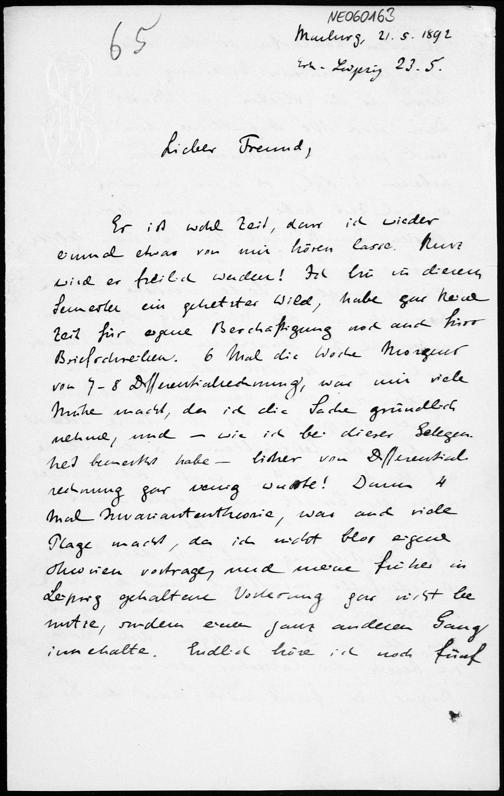 NE060163
65
Marburg, 21. 5. 1892
Leipzig 23. 5.
Lieber Freund,
Es ist wohl Zeit, dass ich wieder
einmal etwas von mir hören lasse. Kurz
wird es freilich werden! Ich bin in diesem
Semester ein gehetztes Wild, habe gar keine
Zeit für eigene Beschäftigung noch auch fürs
Briefschreiben. 6 Mal die Woche Morgens
von 7-8 Differentialrechnung, was mir viele
Mühe macht, da ich die Sache gründlich
nehme, und – wie ich bei dieser Gelegen
heit bemerkt habe – bisher von Differential
rechnung gar wenig wusste! Dann 4
Mal Invariantentheorie, was auch viele
Plage macht, da ich nicht blos eigene
Theorien vortrage, und meine früher in
Leipzig gehaltene Vorlesung gar nicht be
nutze, sondern einen ganz anderen Gang
innehalte. Endlich höre ich noch fünf